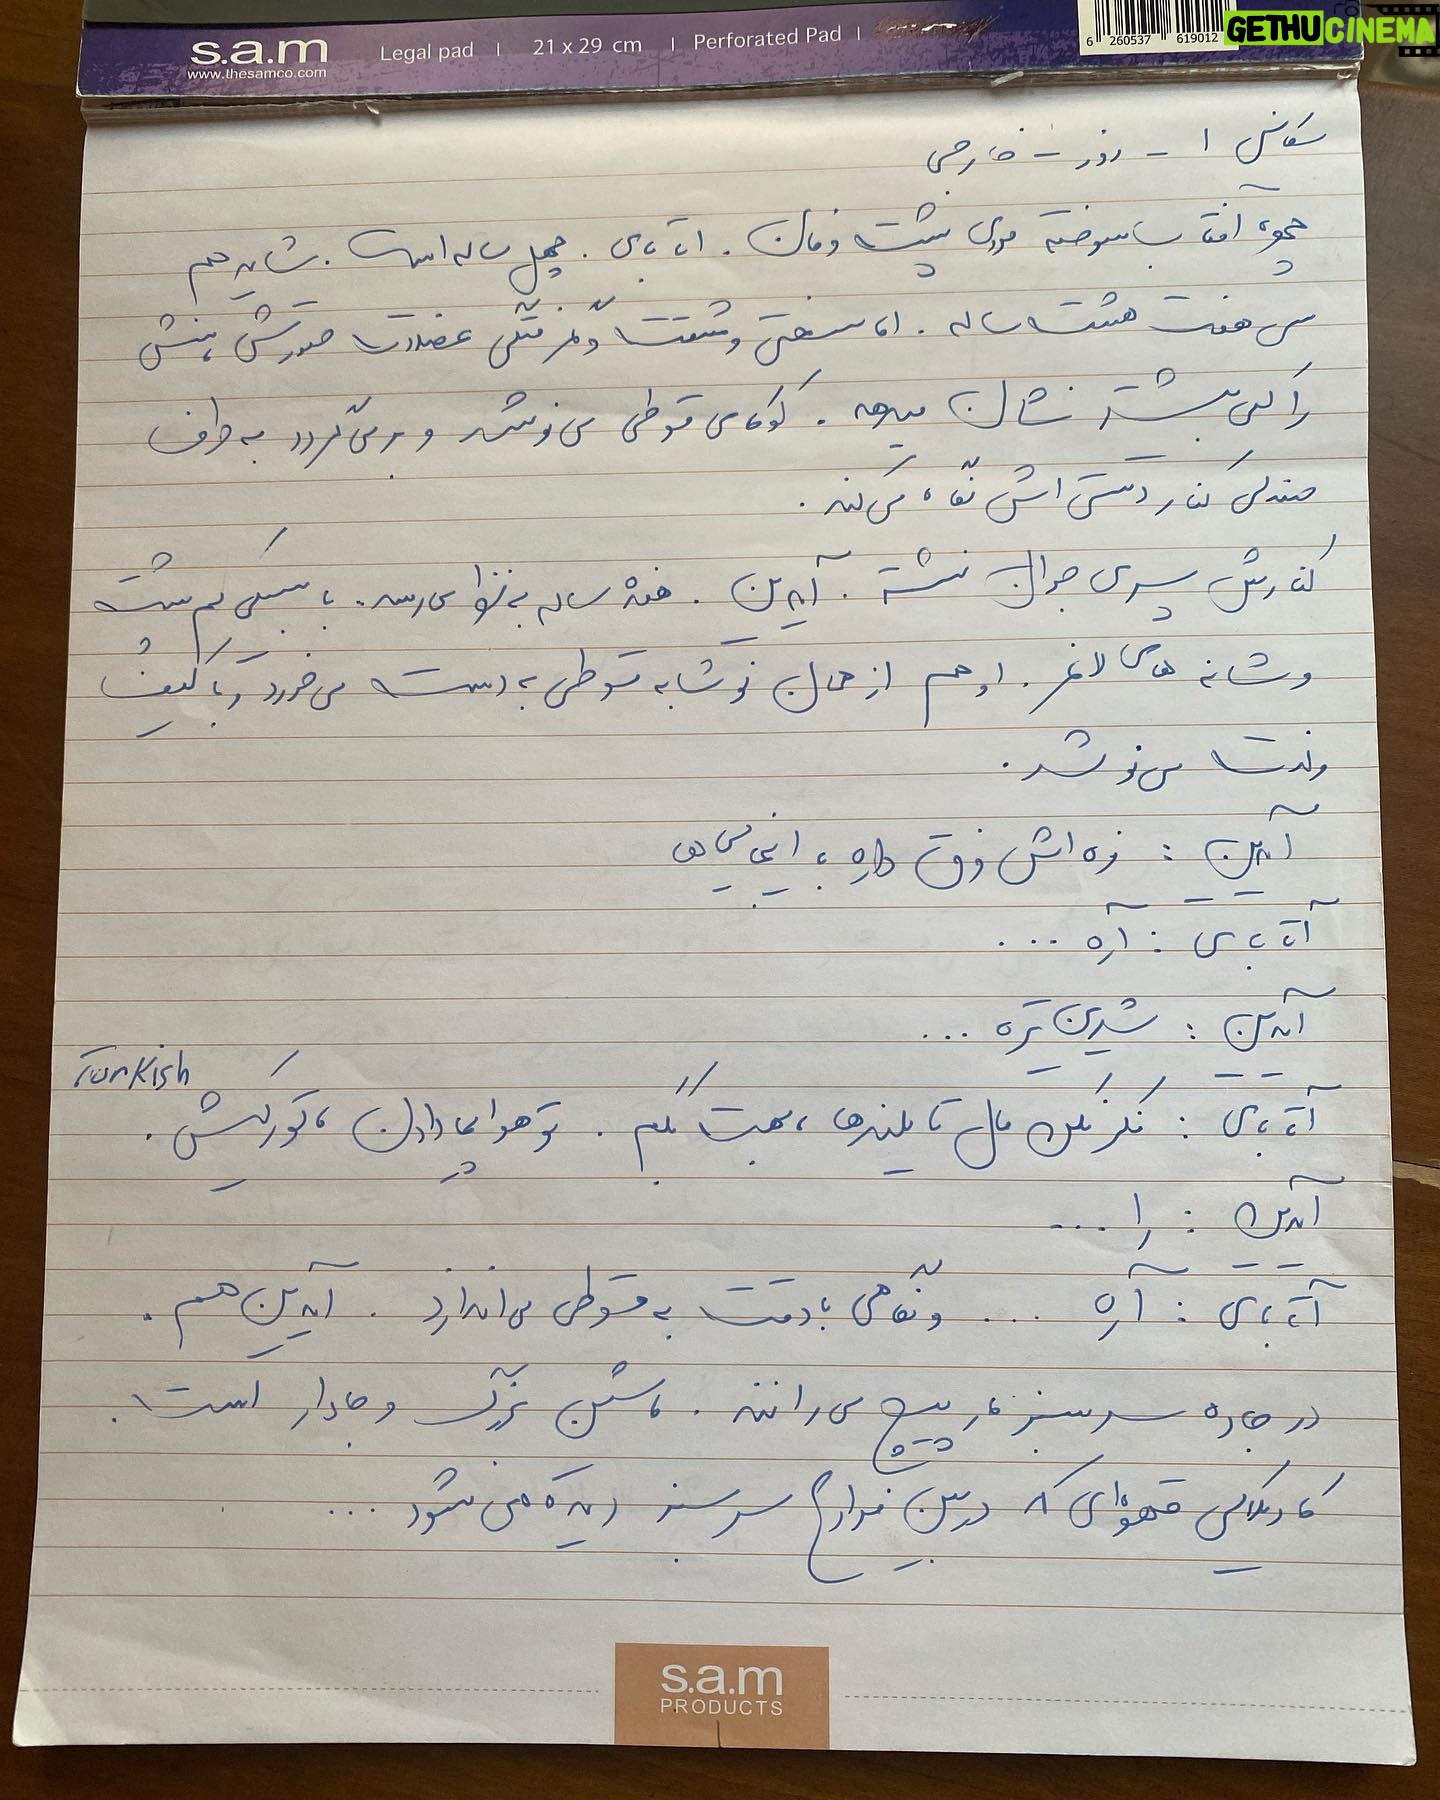 s.a.m
www.thesamco.com
Legal pad | 21 x 29 cm | Perforated Pad |
6 260537 619012
GETHUCINEMA
سکانس ۱ - روز - خارجی
چهره آفتاب سوخته مردی پشت فرمان. آتابای. چهل ساله است. شاید هم
سی هفت هشت ساله. اما سختی و مشقت و گرفتگی عضلات صورتش سنش
را کمی بیشتر نشان میدهد. کوکای قوطی می‌نوشد و برمی‌گردد به طرف
صندلی کنار دستی اش نگاه می‌کند.
کنارش پسری جوان نشسته. آیدین. هفده ساله به نظر می‌رسد. با سبیلی کم پشت
و شانه های لاغر. او هم از همان نوشابه قوطی به دست می‌خورد و با کیف
ولذت می‌نوشد.
آیدین: مزه اش فرق داره با اینجایی ها
آتابای: آره ...
آیدین: شیرین تره ...
Turkish
آتابای: فکر کنم مال تایلندها، بهت بگم. تو هواپیما دادن، آوردمش.
آیدین: را ...
آتابای: آره ... و نگاهی با دقت به قوطی می‌اندازد. آیدین هم.
در جاده سرسبز مارپیچ می‌رانند. ماشین بزرگ و جادار است.
کادیلاکی قهوه‌ای که در بین مزارع سرسبز دیده می‌شود ...
s.a.m
PRODUCTS